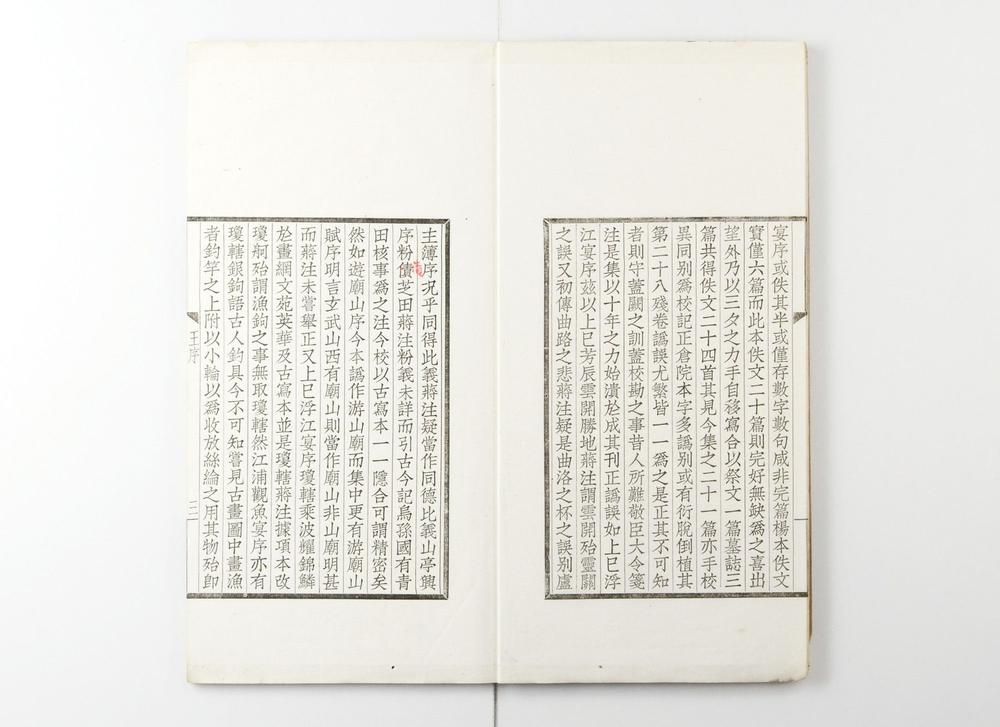 宴序或佚其半或僅存數字數句咸非完篇楊本佚文
實僅六篇而此本佚文二十篇則完好無缺爲之喜出
望外乃以三夕之力手自移寫合以祭文一篇墓誌三
篇共得佚文二十四首其見今集之二十一篇亦手校
異同別爲校記正倉院本字多譌別或有衍脫倒植其
第二十八殘卷譌誤尤繁皆一一爲之是正其不可知
者則守蓋闕之訓蓋校勘之事昔人所難敬臣大令箋
注是集以十年之力始潰於成其刊正譌誤如上巳浮
江宴序茲以上巳芳辰雲開勝地蔣注謂雲開殆靈關
之誤又初傳曲路之悲蔣注疑是曲洛之杯之誤別盧
主簿序況乎同得此義蔣注疑當作同德比義山亭興
序粉債芝田蔣注粉義未詳而引古今記烏孫國有青
田核事爲之注今校以古寫本一一隱合可謂精密矣
然如遊廟山序今本譌作游山廟而集中更有游廟山
賦序明言玄武山西有廟山則當作廟山非山廟明甚
而蔣注未嘗舉正又上巳浮江宴序瓊轄乘波耀錦鱗
於畫網文苑英華及古寫本並是瓊轄蔣注據項本改
瓊舸殆謂漁鉤之事無取瓊轄然江浦觀魚宴序亦有
瓊轄銀鉤語古人釣具今不可知嘗見古畫圖中畫漁
者釣竿之上附以小輪以爲收放絲綸之用其物殆即
王序
三